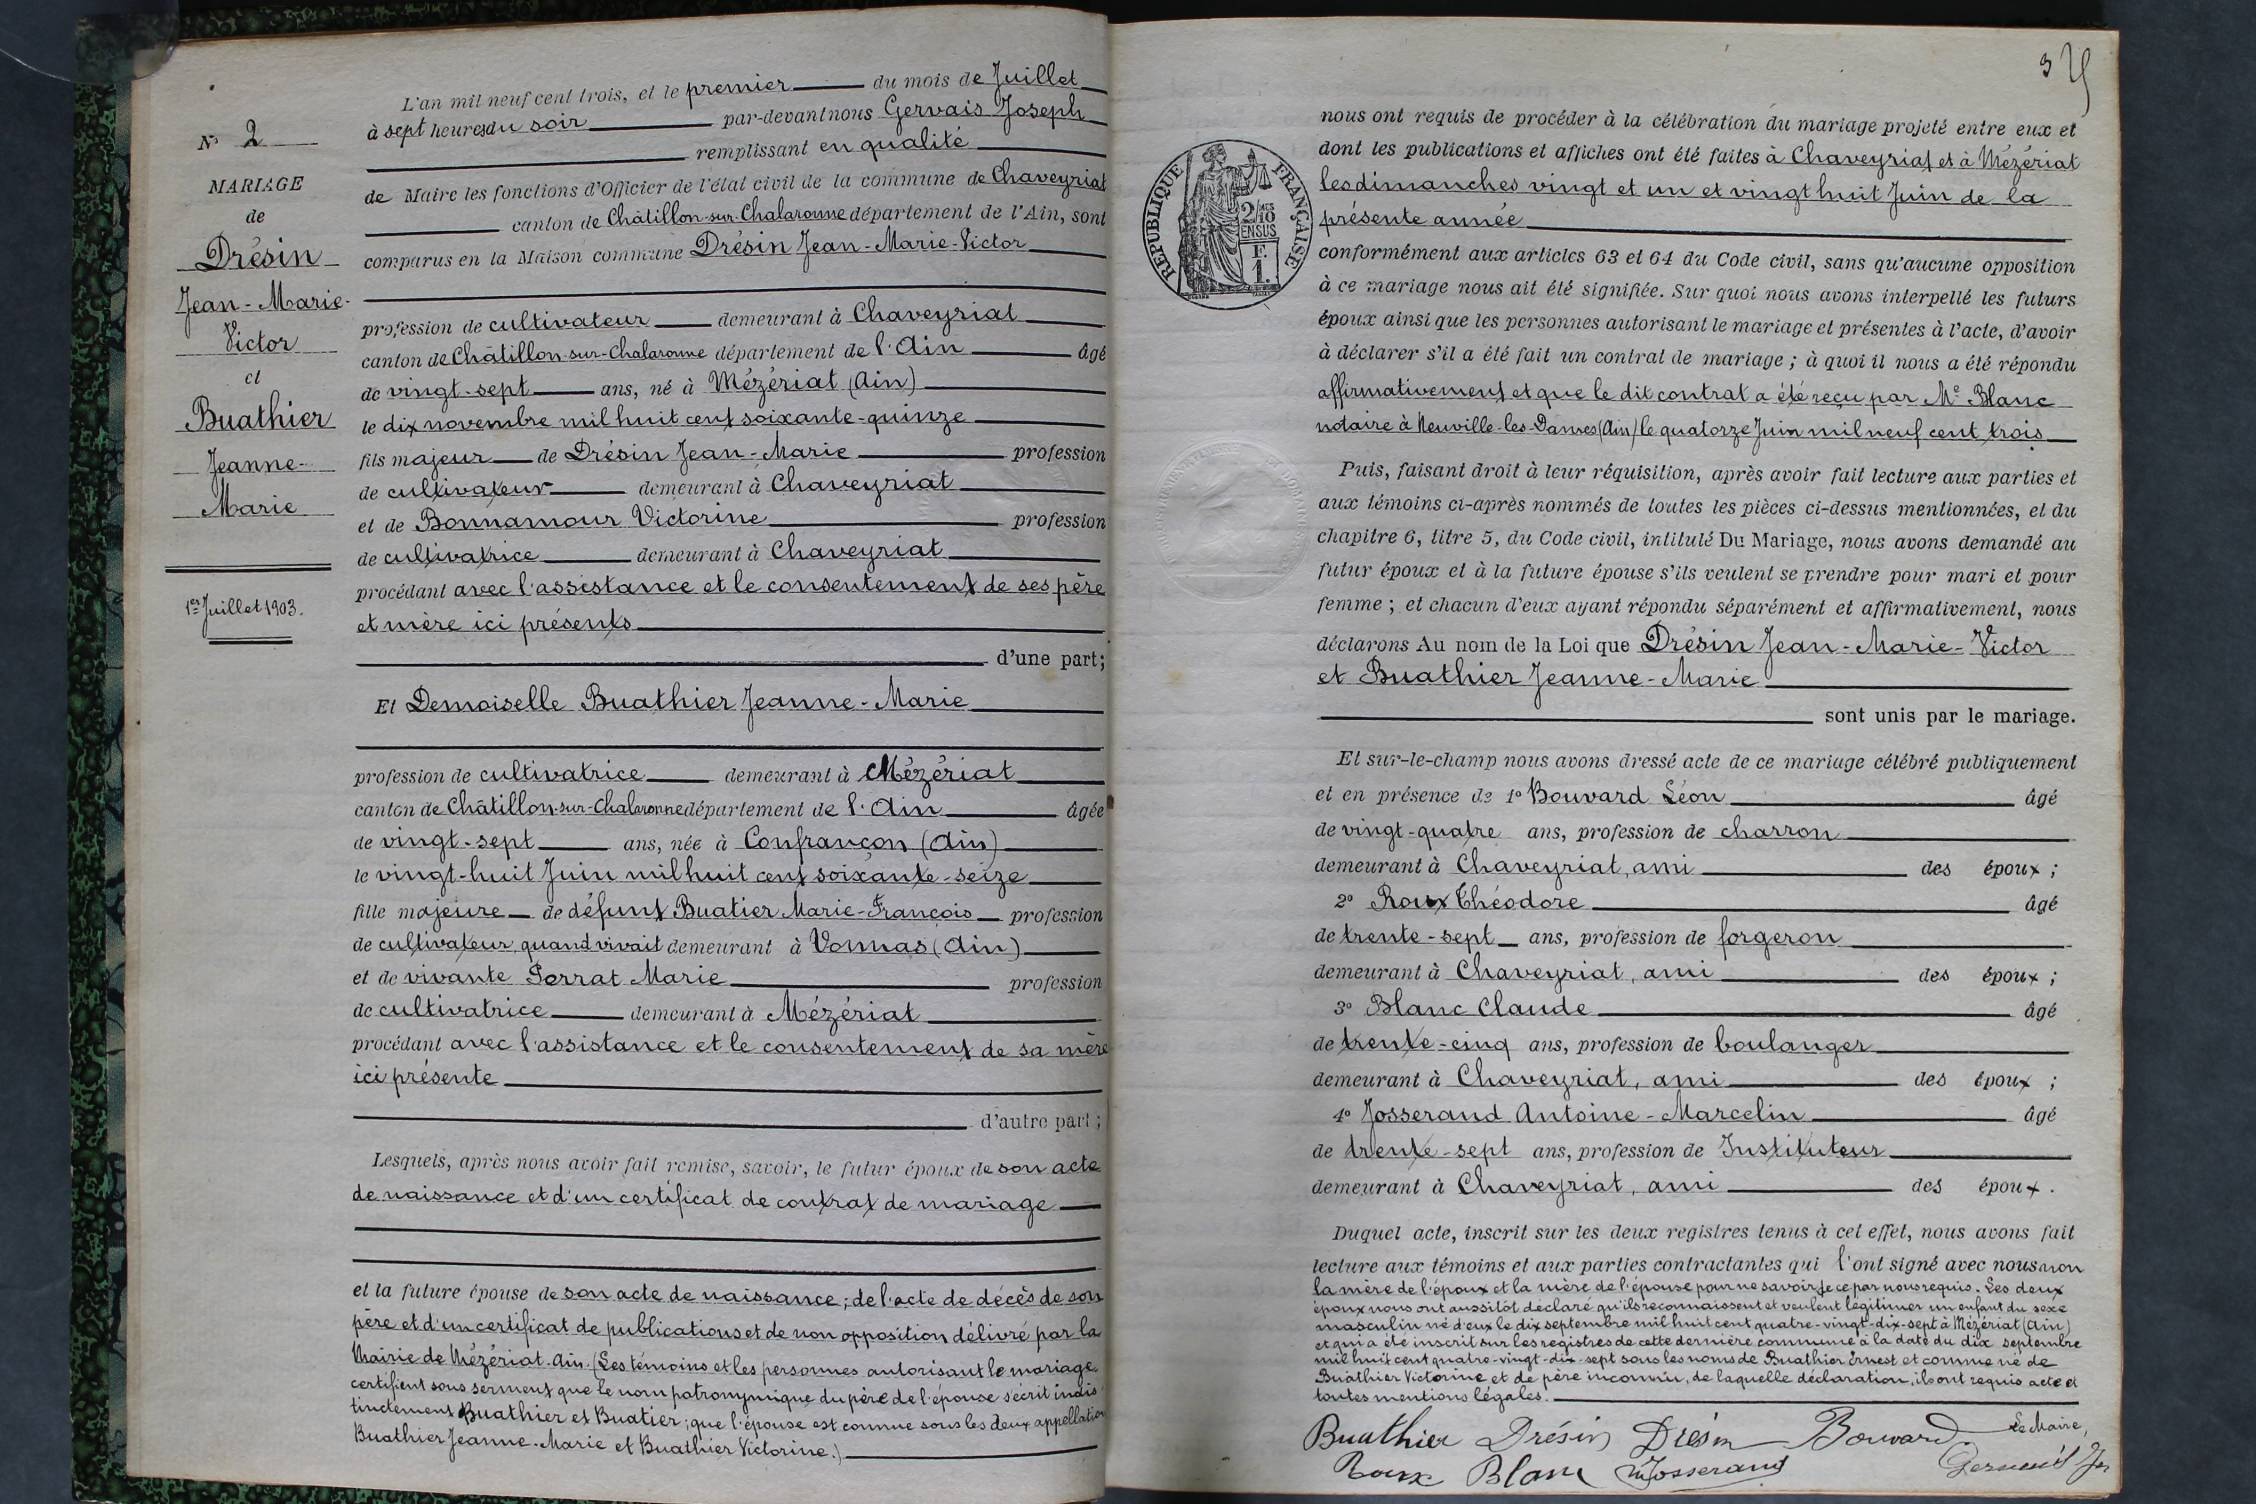 N° 2
MARIAGE
de
Drésin
Jean-Marie-
Victor
et
Buathier
Jeanne-
Marie
1er Juillet 1903.
L'an mil neuf cent trois, et le premier du mois de Juillet
à sept heures du soir par-devant nous Gervais Joseph
remplissant en qualité
de Maire les fonctions d'Officier de l'état civil de la commune de Chaveyriat
canton de Châtillon-sur-Chalaronne département de l'Ain, sont
comparus en la Maison commune Drésin Jean-Marie-Victor
profession de cultivateur demeurant à Chaveyriat
canton de Châtillon-sur-Chalaronne département de l'Ain âgé
de vingt-sept ans, né à Mézériat (Ain)
le dix novembre mil huit cent soixante-quinze
fils majeur de Drésin Jean-Marie profession
de cultivateur demeurant à Chaveyriat
et de Bonnamour Victorine profession
de cultivatrice demeurant à Chaveyriat
procédant avec l'assistance et le consentement de ses père
et mère ici présents
d'une part;
Et Demoiselle Buathier Jeanne-Marie
profession de cultivatrice demeurant à Mézériat
canton de Châtillon-sur-Chalaronne département de l'Ain âgée
de vingt-sept ans, née à Confrançon (Ain)
le vingt-huit Juin mil huit cent soixante-seize
fille majeure de défunt Buatier Marie-François profession
de cultivateur quand vivait demeurant à Vonnas (Ain)
et de vivante Perrat Marie profession
de cultivatrice demeurant à Mézériat
procédant avec l'assistance et le consentement de sa mère
ici présente
d'autre part;
Lesquels, après nous avoir fait remise, savoir, le futur époux de son acte
de naissance et d'un certificat de contrat de mariage
et la future épouse de son acte de naissance; de l'acte de décès de son
père et d'un certificat de publications et de non opposition délivré par la
Mairie de Mézériat. Ain. (Les témoins et les personnes autorisant le mariage
certifient sous serment que le nom patronymique du père de l'épouse s'écrit indis
tinctement Buathier et Buatier; que l'épouse est connue sous les deux appellations
Buathier Jeanne-Marie et Buathier Victorine.)
3
RÉPUBLIQUE FRANÇAISE
2/10 EN SUS
F.
1.
nous ont requis de procéder à la célébration du mariage projeté entre eux et
dont les publications et affiches ont été faites à Chaveyriat et à Mézériat
les dimanches vingt et un et vingt huit Juin de la
présente année
conformément aux articles 63 et 64 du Code civil, sans qu'aucune opposition
à ce mariage nous ait été signifiée. Sur quoi nous avons interpellé les futurs
époux ainsi que les personnes autorisant le mariage et présentes à l'acte, d'avoir
à déclarer s'il a été fait un contrat de mariage; à quoi il nous a été répondu
affirmativement et que le dit contrat a été reçu par Me Blanc
notaire à Neuville-les-Dames (Ain) le quatorze Juin mil neuf cent trois
Puis, faisant droit à leur réquisition, après avoir fait lecture aux parties et
aux témoins ci-après nommés de toutes les pièces ci-dessus mentionnées, et du
chapitre 6, titre 5, du Code civil, intitulé Du Mariage, nous avons demandé au
futur époux et à la future épouse s'ils veulent se prendre pour mari et pour
femme; et chacun d'eux ayant répondu séparément et affirmativement, nous
déclarons Au nom de la Loi que Drésin Jean-Marie-Victor
et Buathier Jeanne-Marie
sont unis par le mariage.
Et sur-le-champ nous avons dressé acte de ce mariage célébré publiquement
et en présence de 1° Bouvard Léon âgé
de vingt-quatre ans, profession de charron
demeurant à Chaveyriat, ami des époux;
2° Roux Théodore âgé
de trente-sept ans, profession de forgeron
demeurant à Chaveyriat, ami des époux;
3° Blanc Claude âgé
de trente-cinq ans, profession de boulanger
demeurant à Chaveyriat, ami des époux;
4° Josserand Antoine-Marcelin âgé
de trente-sept ans, profession de Instituteur
demeurant à Chaveyriat, ami des époux.
Duquel acte, inscrit sur les deux registres tenus à cet effet, nous avons fait
lecture aux témoins et aux parties contractantes qui l'ont signé avec nous non
la mère de l'époux et la mère de l'épouse pour ne savoir, de ce par nous requis. Les deux
époux nous ont aussitôt déclaré qu'ils reconnaissent et veulent légitimer un enfant du sexe
masculin né d'eux le dix septembre mil huit cent quatre-vingt-dix-sept à Mézériat (Ain)
et qui a été inscrit sur les registres de cette dernière commune à la date du dix septembre
mil huit cent quatre-vingt-dix-sept sous les noms de Buathier Ernest et comme né de
Buathier Victorine et de père inconnu, de laquelle déclaration, ils ont requis acte et
toutes mentions légales.
Buathier Drésin Drésin Bouvard Le Maire,
Roux Blanc Josserand